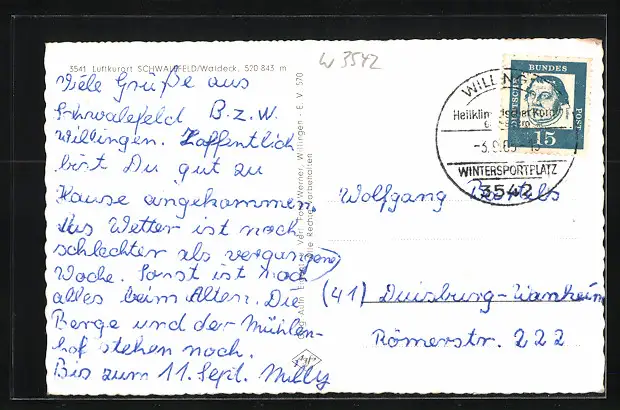 3541 Luftkurort SCHWALEFELD/Waldeck, 520-843 m
W 3542
Viele Grüße aus
Schwalefeld B.z.w.
Willingen. Hoffentlich
bist Du gut zu
Hause angekommen.
Das Wetter ist noch
schlechter als vergangene
Woche. Sonst ist noch
alles beim Alten. Die
Berge und der Mühlen-
hof stehen noch.
Bis zum 11. Sept. Milly
Verl. Foto-Werner, Willingen - E. V. 570
Alle Rechte vorbehalten
WILLINGEN
Heilklimatischer Kurort
WINTERSPORTPLATZ
3542
DEUTSCHE BUNDESPOST
15
Wolfgang
(41) Duisburg-Wanheim
Römerstr. 222